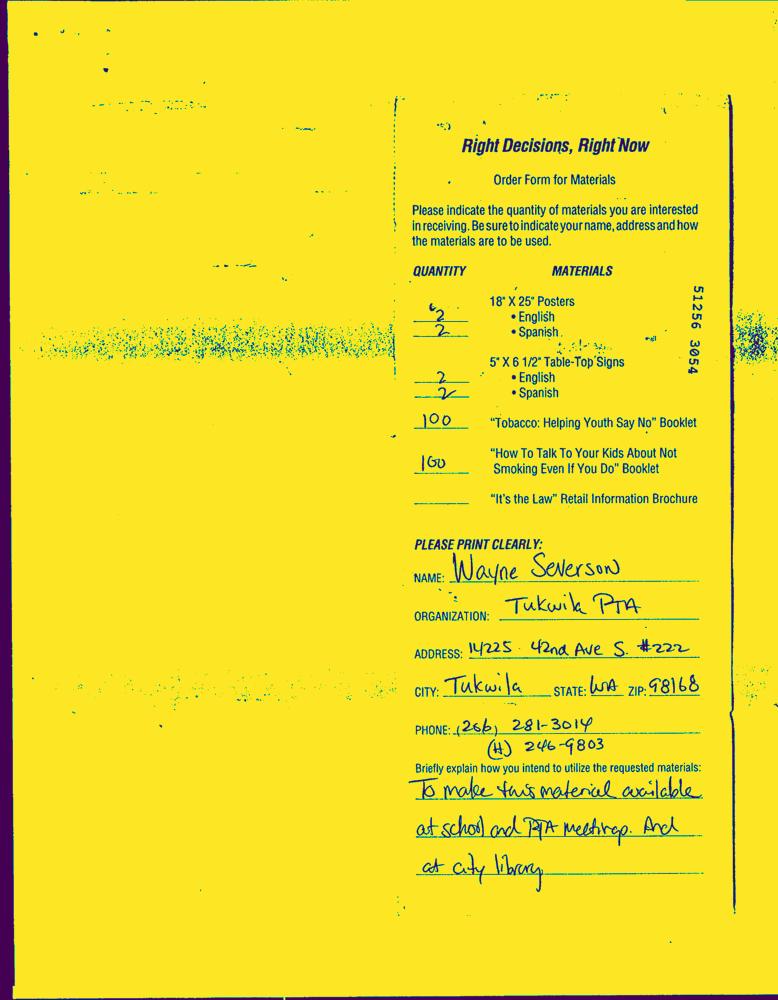 Right Decisions, Right Now
Order Form for Materials
Please indicate the quantity of materials you are interested
in receiving. Be sure to indicate your name, address and how
the materials are to be used.
QUANTITY MATERIALS
18" X 25" Posters
2 • English
2 • Spanish
5" X 6 1/2" Table-Top Signs
2 • English
2 • Spanish
100 "Tobacco: Helping Youth Say No" Booklet
"How To Talk To Your Kids About Not
100 Smoking Even If You Do" Booklet
"It's the Law" Retail Information Brochure
51256 3054
PLEASE PRINT CLEARLY:
NAME: Wayne Severson
ORGANIZATION: Tukwila PTA
ADDRESS: 14225 42nd Ave S. #222
CITY: Tukwila STATE: WA ZIP: 98168
PHONE: (206) 281-3014
(H) 246-9803
Briefly explain how you intend to utilize the requested materials:
To make this material available
at school and PTA meetings. And
at city library